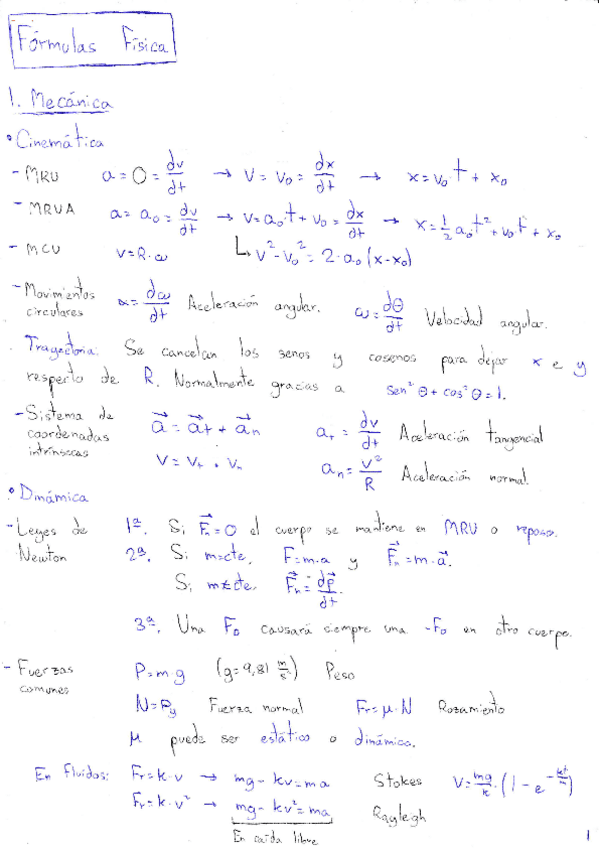 Fórmulas Física
1. Mecánica
• Cinemática
- MRU a = 0 = dv/dt → v = v₀ = dx/dt → x = v₀·t + x₀
- MRUA a = a₀ = dv/dt → v = a₀·t + v₀ = dx/dt → x = 1/2 a₀·t² + v₀·t + x₀
- MCU v = R·ω ↳ v² - v₀² = 2·a₀(x-x₀)
- Movimientos circulares α = dω/dt Aceleración angular. ω = dθ/dt Velocidad angular.
Trayectoria: Se cancelan los senos y cosenos para dejar x e y
respecto de R. Normalmente gracias a sen²θ + cos²θ = 1.
- Sistema de coordenadas intrínsecas a⃗ = a⃗t + a⃗n at = dv/dt Aceleración tangencial
v = vt · vn an = v²/R Aceleración normal.
• Dinámica
- Leyes de Newton 1ª. Si F⃗n = 0 el cuerpo se mantiene en MRU o reposo.
2ª. Si m=cte. F = m·a y F⃗n = m·a⃗.
Si m≠cte. F⃗n = dp⃗/dt.
3ª. Una F₀ causará siempre una -F₀ en otro cuerpo.
- Fuerzas comunes P = m·g (g = 9,81 m/s²) Peso
N = Py Fuerza normal Fr = μ·N Rozamiento
μ puede ser estático o dinámico.
En fluidos: Fr = k·v → mg - kv = ma Stokes v = mg/k·(1 - e^(-kt/m))
Fr = k·v² → mg - kv² = ma Raylegh
En caída libre
1